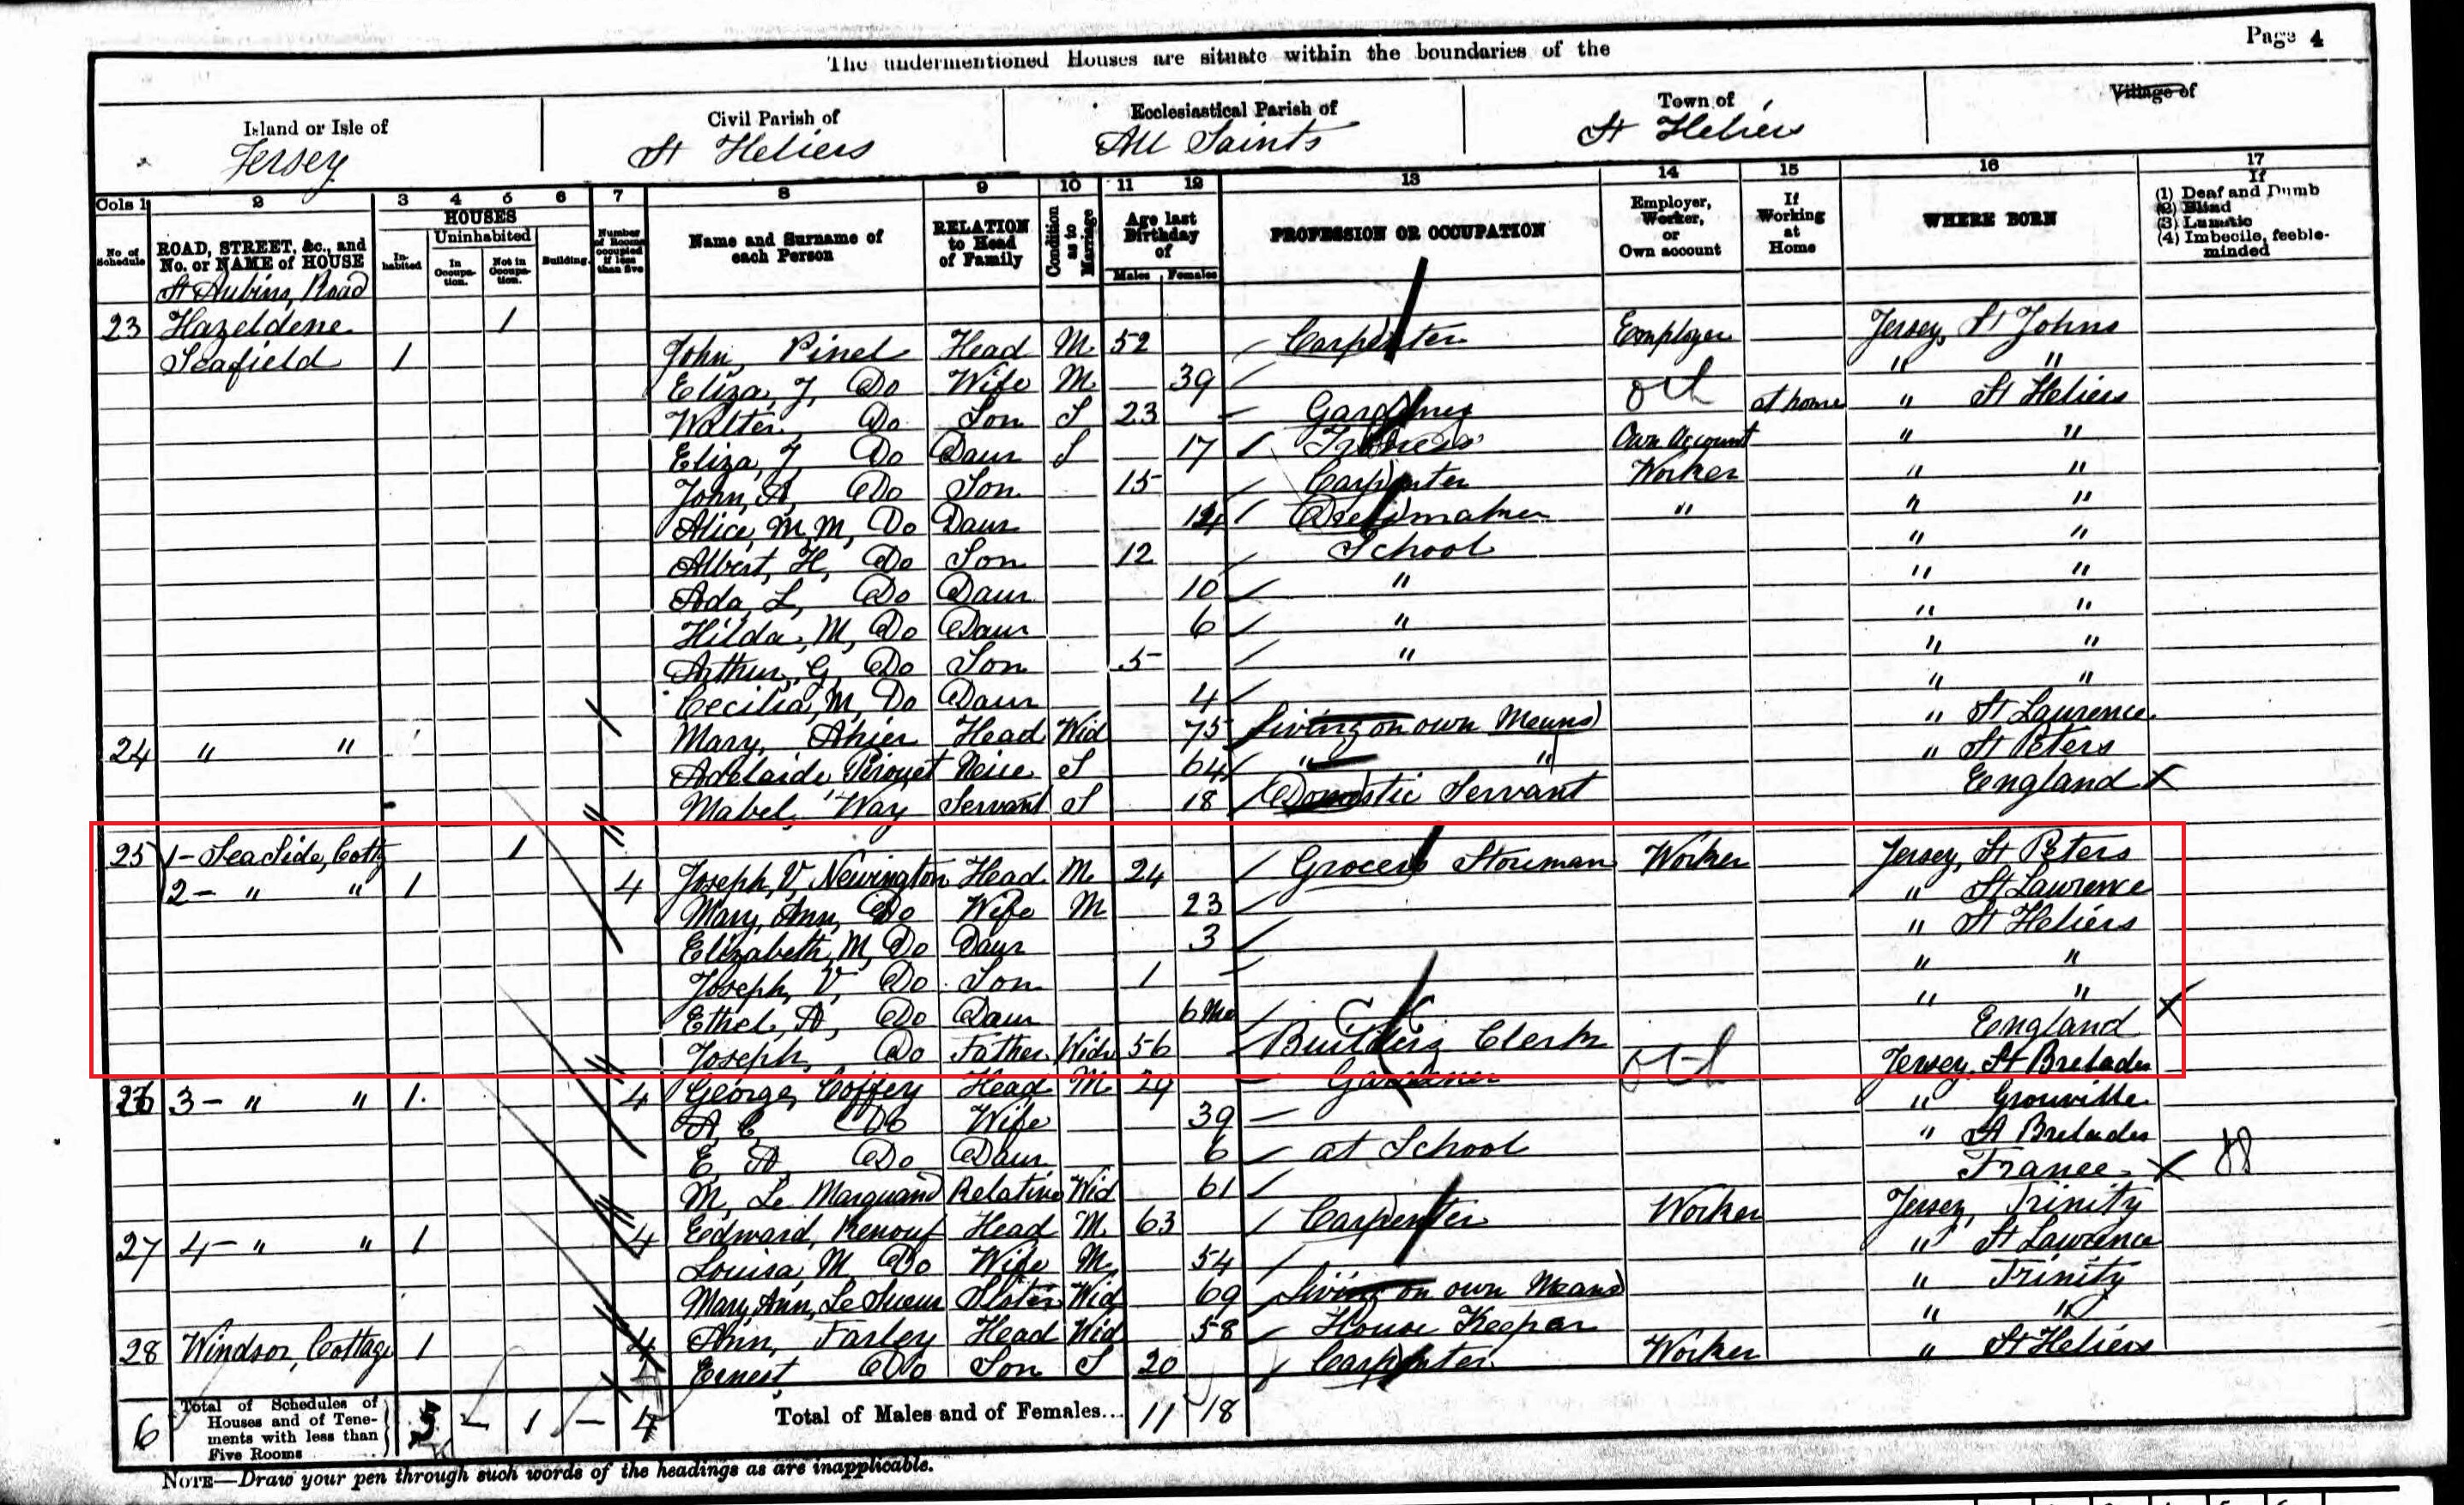 Page 4
The undermentioned Houses are situate within the boundaries of the
Island or Isle of Civil Parish of Ecclesiastical Parish of Town of Village of
Jersey St Heliers All Saints St Heliers
Cols 1 2 3 4 5 6 7 8 9 10 11 12 13 14 15 16 17
No of Schedule ROAD, STREET, &c., and No. or NAME of HOUSE HOUSES In-habited Uninhabited In Occupa-tion. Not in Occupa-tion. Building. Number of Rooms occupied if less than five Name and Surname of each Person RELATION to Head of Family Condition as to Marriage Age last Birthday of Males Females PROFESSION OR OCCUPATION Employer, Worker, or Own account If Working at Home WHERE BORN If (1) Deaf and Dumb (2) Blind (3) Lunatic (4) Imbecile, feeble-minded
St Aubins, Road
23 Hazeldene 1
Seafield 1 John, Pinel Head M 52 Carpenter Employer Jersey, St Johns
Eliza, J, Do Wife M 39 " "
Walter, Do Son S 23 at home " St Heliers
Eliza, J, Do Daur S 17 Own Account " "
John, A, Do Son 15 Carpenter Worker " "
Alice, M, M, Do Daur 14 Dressmaker " " "
Albert, H, Do Son 12 School " "
Ada, L, Do Daur 10 " " "
Hilda, M, Do Daur 6 " " "
Arthur, G, Do Son 5 " " "
Cecilia, M, Do Daur 4 " "
24 " " Mary, Ahier Head Wid 75 Living on own Means " St Lawrence
Adelaide, Pirouet Neice S 64 " " " St Peters
Mabel, Way Servant S 18 Domestic Servant England X
25 1 - Sea Side, Cottg 1
2 - " " 1 4 Joseph, V, Newington Head M 24 Grocers Storeman Worker Jersey, St Peters
Mary, Ann, Do Wife M 23 " St Lawrence
Elizabeth, M, Do Daur 3 " St Heliers
Joseph, V, Do Son 1 " "
Ethel, A, Do Daur 6 Mo " "
Joseph, Do Father Widr 56 Building Clerk England X
26 3 - " " 1 4 George, Coffey Head M 29 Gardener Jersey, St Brelades
A, C, Do Wife 39 " Grouville
E, A, Do Daur 6 at School " St Brelades
M, Le Marquand Relative Wid 61 France X
27 4 - " " 1 4 Edward, Renouf Head M 63 Carpenter Worker Jersey, Trinity
Louisa, M Do Wife M 54 " St Lawrence
Mary Ann, Le Sueur Sister Wid 69 Living on own Means " Trinity
28 Windsor, Cottage 1 4 Ann, Farley Head Wid 58 House Keeper " "
Ernest Do Son S 20 Carpenter Worker " St Heliers
6 Total of Schedules of Houses and of Tene-ments with less than Five Rooms 5 - 1 - 4 Total of Males and of Females... 11 18
NOTE—Draw your pen through such words of the headings as are inapplicable.